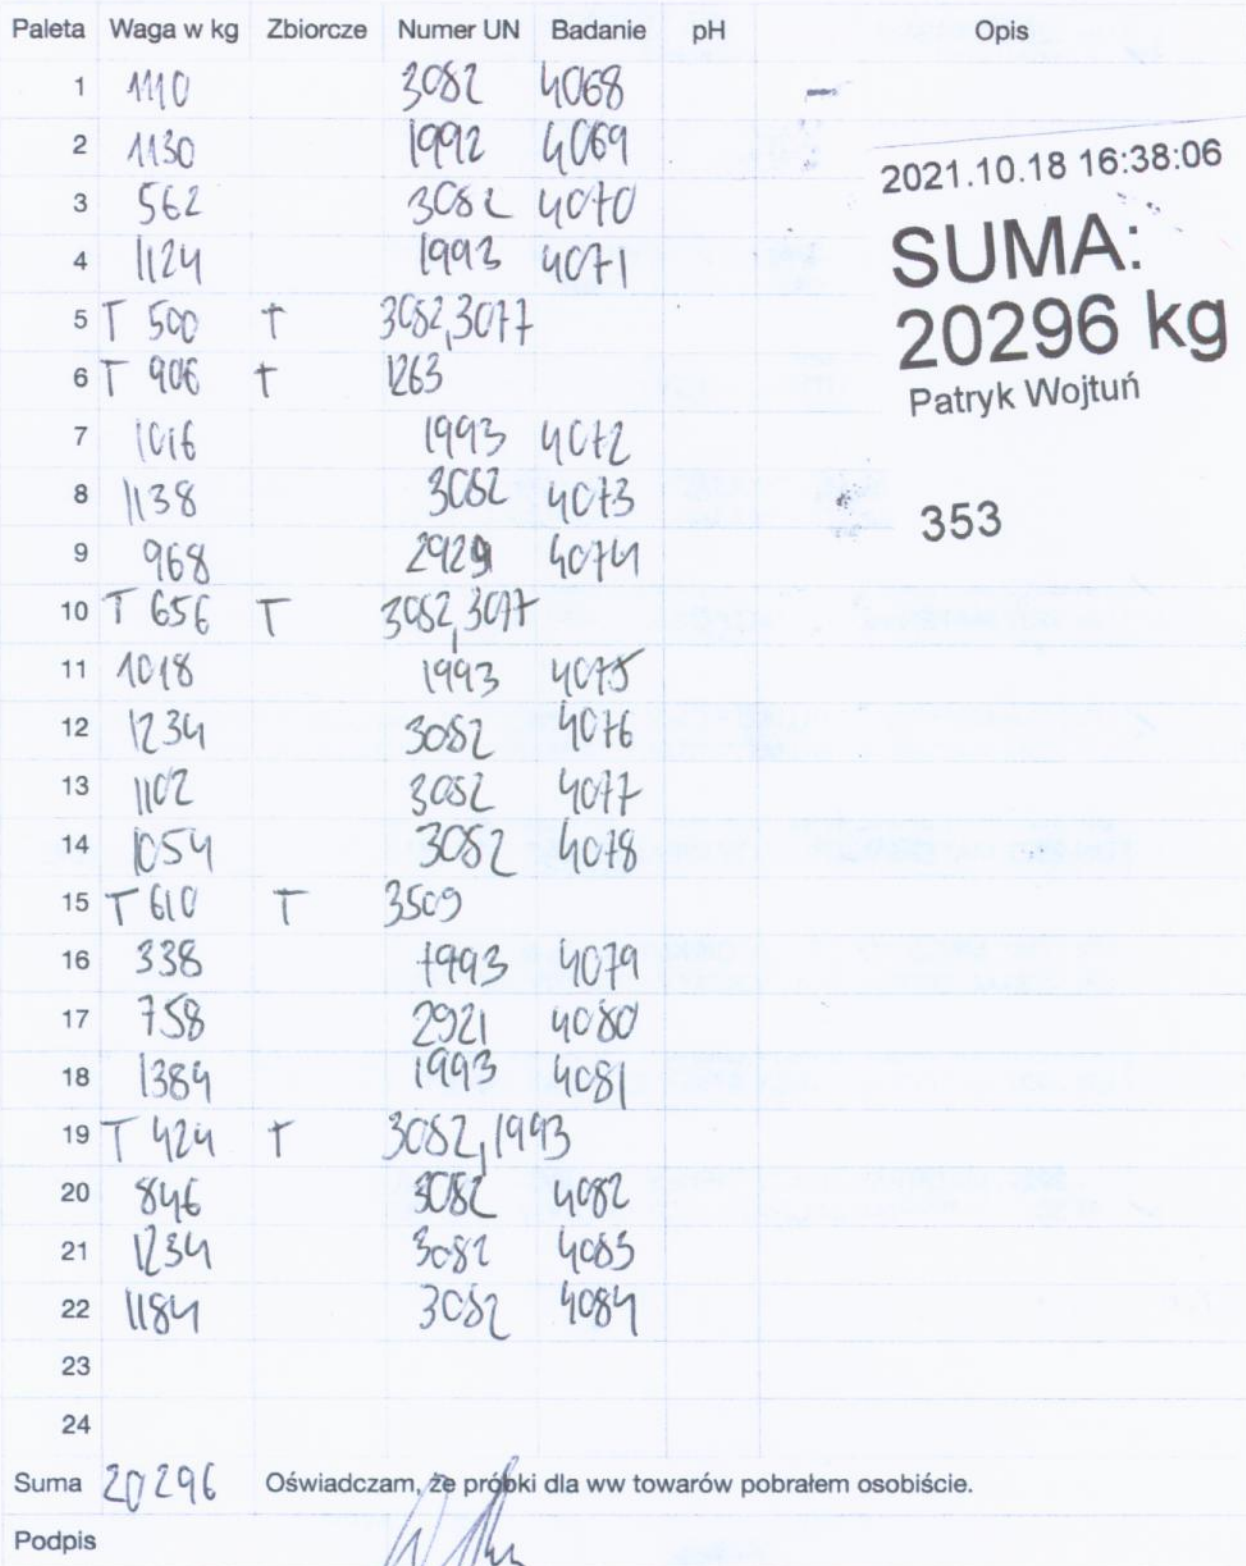 Paleta Waga w kg Zbiorcze Numer UN Badanie pH Opis
1 1110 3082 4068
2 1130 1992 4069
3 562 3082 4070
4 1124 1993 4071
5 T 500 T 3082,3077
6 T 906 T 1263
7 1016 1993 4072
8 1138 3082 4073
9 968 2929 4074
10 T 656 T 3082,3077
11 1018 1993 4075
12 1234 3082 4076
13 1102 3082 4077
14 1054 3082 4078
15 T 610 T 3509
16 338 1993 4079
17 758 2921 4080
18 1384 1993 4081
19 T 424 T 3082,1993
20 846 3082 4082
21 1234 3082 4083
22 1184 3082 4084
23
24
Suma 20296 Oświadczam, że próbki dla ww towarów pobrałem osobiście.
Podpis
2021.10.18 16:38:06
SUMA:
20296 kg
Patryk Wojtuń
353